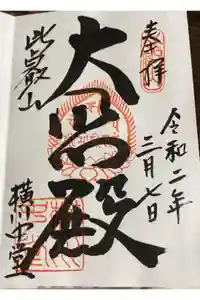 奉拝
令和二年
三月七日
大悲殿
比叡山
横川中堂